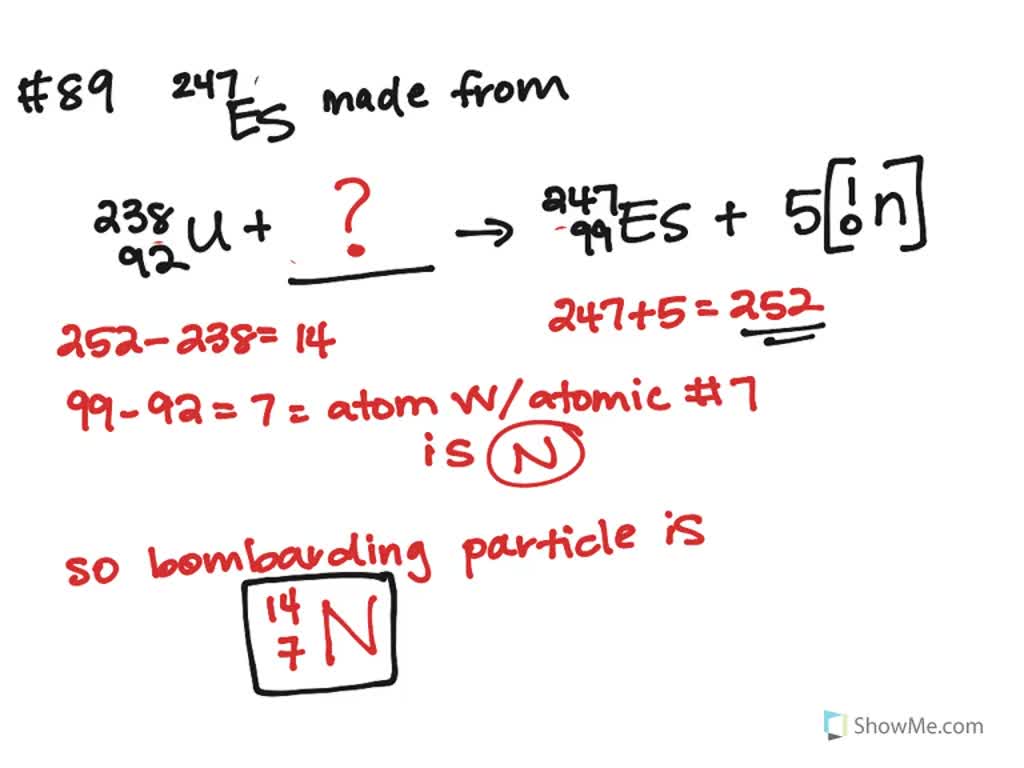 #89 ²⁴⁷ES made from
²³⁸₉₂U + ? → ²⁴⁷₉₉ES + 5[¹₀n]
247+5=252
252-238=14
99-92=7= atom w/atomic #7
is N
so bombarding particle is
¹⁴₇N
ShowMe.com